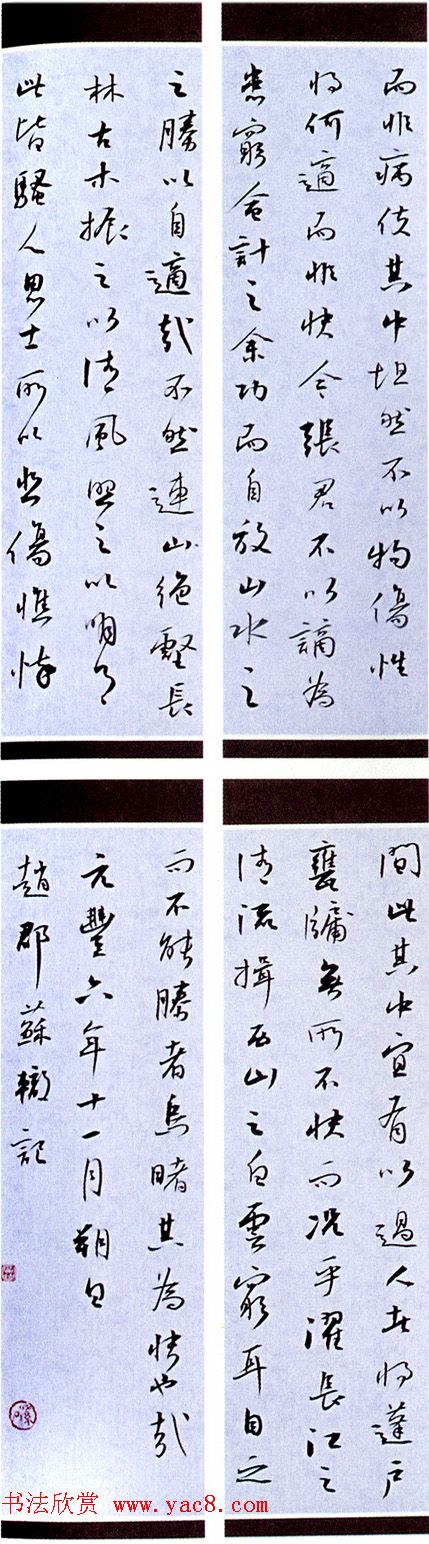 而非病使其中坦然不以物傷性
將何適而非快今張君不以謫為
患窮會計之余功而自放山水之
間此其中宜有以過人者將蓬戶
甕牖無所不快而況乎濯長江之
清流揖西山之白雲窮耳目之
之勝以自適哉不然連山絕壑長
林古木振之以清風照之以明月
此皆騷人思士所以悲傷憔悴
而不能勝者烏睹其為快也哉
元豐六年十一月朔日
趙郡蘇轍記
书法欣赏 www.yac8.com